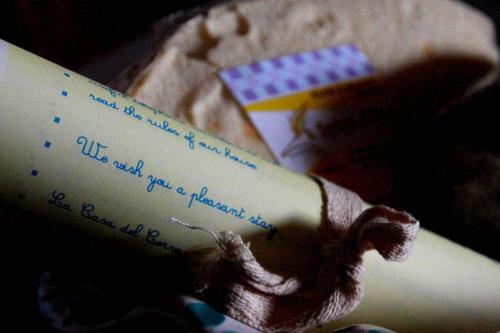 read the rules of our house
We wish you a pleasant stay
La Casa del